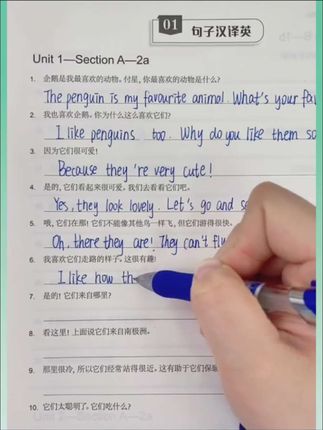 01
句子汉译英
Unit 1—Section A—2a
1. 企鹅是我最喜欢的动物。付星，你最喜欢的动物是什么？
The penguin is my favourite animal. What's your fav
2. 我也喜欢企鹅。你为什么这么喜欢它们？
I like penguins too. Why do you like them so
3. 因为它们很可爱！
Because they're very cute!
4. 是的，它们看起来很可爱。我们去看看它们吧。
Yes, they look lovely. Let's go and se
5. 哦，它们在那！它们不能像其他鸟一样飞，但它们游得很快。
Oh, there they are! They can't fly
6. 我喜欢它们走路的样子。这很有趣！
I like how th
7. 是的！它们来自哪里？
8. 看这里！上面说它们来自南极洲。
9. 那里很冷，所以它们经常站得很近。这有助于它们保
10. 它们太聪明了。它们吃什么？